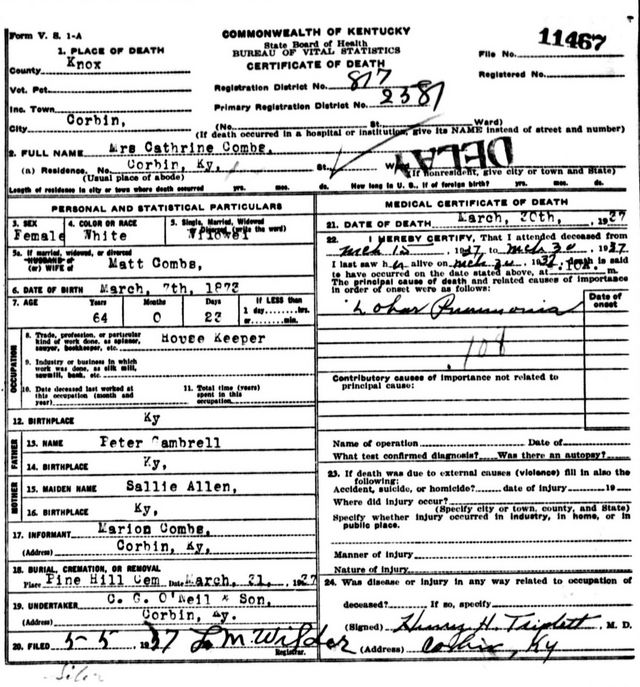 Form V. S. 1-A
COMMONWEALTH OF KENTUCKY
State Board of Health
BUREAU OF VITAL STATISTICS
CERTIFICATE OF DEATH
File No. 11467
Registered No.
1. PLACE OF DEATH
County Knox
Vot. Pct.
Inc. Town
City Corbin,
Registration District No. 817
Primary Registration District No. 2381
(No. St. Ward)
(If death occurred in a hospital or institution, give its NAME instead of street and number)
DELAY
2. FULL NAME Mrs Cathrine Combs,
(a) Residence. No. Corbin, Ky, St.
(Usual place of abode) (If nonresident, give city or town and State)
Length of residence in city or town where death occurred yrs. mos. ds. How long in U. S., if of foreign birth? yrs. mos. ds.
PERSONAL AND STATISTICAL PARTICULARS
3. SEX Female
4. COLOR OR RACE White
5. Single, Married, Widowed (write the word) Widowed
5a. If married, widowed, or divorced
HUSBAND of
(or) WIFE of Matt Combs,
6. DATE OF BIRTH March, 7th, 1873
7. AGE Years 64 Months 0 Days 23 If LESS than 1 day hrs. or min.
OCCUPATION
8. Trade, profession, or particular kind of work done, as spinner, sawyer, bookkeeper, etc. House Keeper
9. Industry or business in which work was done, as silk mill, sawmill, bank, etc.
10. Date deceased last worked at this occupation (month and year)
11. Total time (years) spent in this occupation
12. BIRTHPLACE Ky
FATHER
13. NAME Peter Gambrell
14. BIRTHPLACE Ky,
MOTHER
15. MAIDEN NAME Sallie Allen,
16. BIRTHPLACE Ky,
17. INFORMANT Marion Combs,
(Address) Corbin, Ky,
18. BURIAL, CREMATION, OR REMOVAL
Place Pine Hill Cem Date March, 31, 1937
19. UNDERTAKER C. G. O'Neil & Son,
(Address) Corbin, Ky.
20. FILED 5-5 1937 L M Wilder
Registrar.
MEDICAL CERTIFICATE OF DEATH
21. DATE OF DEATH March, 30th, 1937
22. I HEREBY CERTIFY, That I attended deceased from
Mch 15 1937 to Mch 30 1937.
I last saw h alive on Mch 30 1937, death is said
to have occurred on the date stated above, at 10A. m.
The principal cause of death and related causes of importance
in order of onset were as follows:
Date of onset
Lobar Pneumonia
108
Contributory causes of importance not related to
principal cause:
Name of operation Date of
What test confirmed diagnosis? Was there an autopsy?
23. If death was due to external causes (violence) fill in also the
following:
Accident, suicide, or homicide? date of injury 19
Where did injury occur?
(Specify city or town, county, and State)
Specify whether injury occurred in industry, in home, or in
public place.
Manner of injury
Nature of injury
24. Was disease or injury in any way related to occupation of
deceased? If so, specify
(Signed) Henry H. Triplett M. D.
(Address) Corbin, Ky